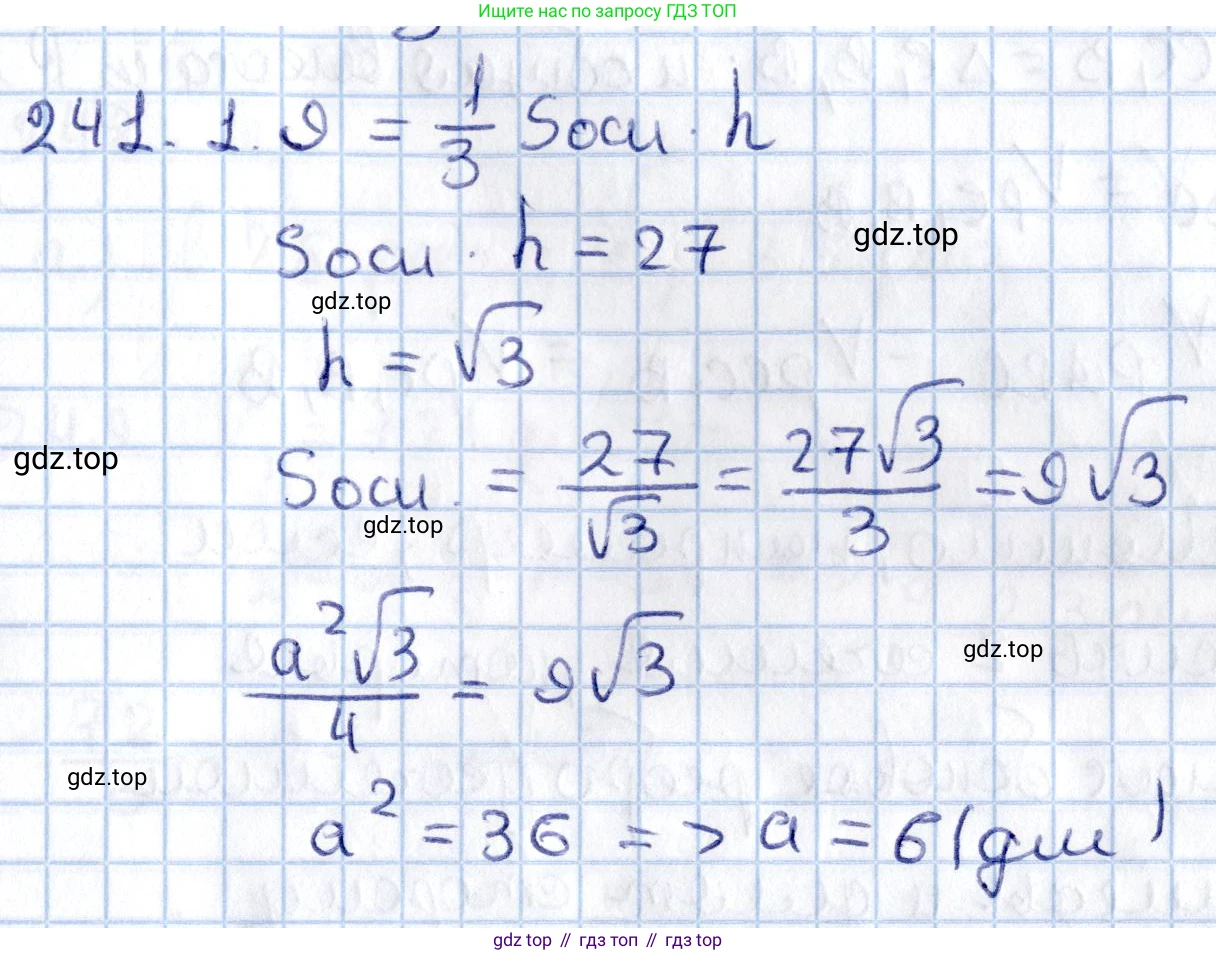 Ищите нас по запросу ГДЗ ТОП
241. 1. 9 = 1/3 Sосн. h
Sосн. h = 27
gdz.top
gdz.top
h = √3
Sосн. = 27/√3 = 27√3/3 = 9√3
gdz.top
gdz.top
a²√3/4 = 9√3
gdz.top
gdz.top
a² = 36 => a = 6 (дм)
gdz top // гдз топ // gdz top